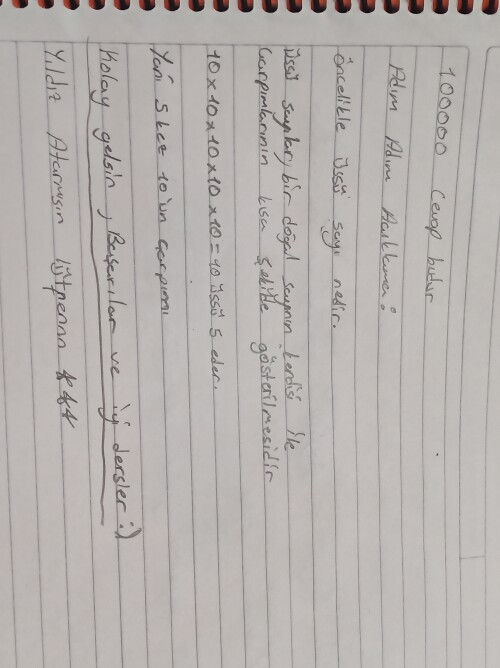 100000 Cevap budur
Adım Adım Açıklama:
Öncelikle üssü sayı nedir.
üssü sayılar, bir doğal sayının kendisi ile
çarpımlarının kısa şekilde gösterilmesidir
10x10x10x10x10=10 üssü 5 eder.
Yani 5 kez 10'un çarpımı
Kolay gelsin, Başarılar ve iyi dersler :)
Yıldız Atarmısın lütfennn